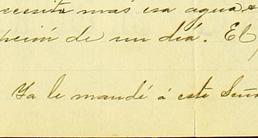 necesita más esa agua
pción de un día. El
Ya le mandé á este Seño